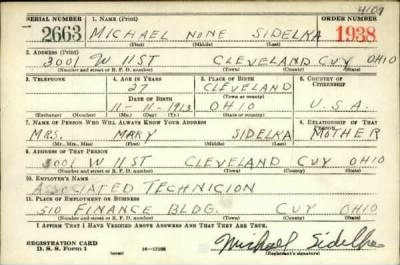 4109
SERIAL NUMBER 1. NAME (Print) ORDER NUMBER
2663 MICHAEL NONE SIDELKA 1938
(First) (Middle) (Last)
2. ADDRESS (Print)
3001 W 11 ST CLEVELAND CUY OHIO
(Number and street or R. F. D. number) (Town) (County) (State)
3. TELEPHONE 4. AGE IN YEARS 5. PLACE OF BIRTH 6. COUNTRY OF CITIZENSHIP
27 CLEVELAND
DATE OF BIRTH (Town or county)
11-11-1913 OHIO U.S.A.
(Exchange) (Number) (Mo.) (Day) (Yr.) (State or country)
7. NAME OF PERSON WHO WILL ALWAYS KNOW YOUR ADDRESS 8. RELATIONSHIP OF THAT PERSON
MRS. MARY SIDELKA MOTHER
(Mr., Mrs., Miss) (First) (Middle) (Last)
9. ADDRESS OF THAT PERSON
3001 W 11 ST CLEVELAND CUY OHIO
(Number and street or R. F. D. number) (Town) (County) (State)
10. EMPLOYER'S NAME
ASSOCIATED TECHNICION
11. PLACE OF EMPLOYMENT OR BUSINESS
510 FINANCE BLDG. CUY OHIO
(Number and street or R. F. D. number) (Town) (County) (State)
I AFFIRM THAT I HAVE VERIFIED ABOVE ANSWERS AND THAT THEY ARE TRUE.
REGISTRATION CARD
D. S. S. Form 1 16—17105 Michael Sidelka
(Registrant's signature)